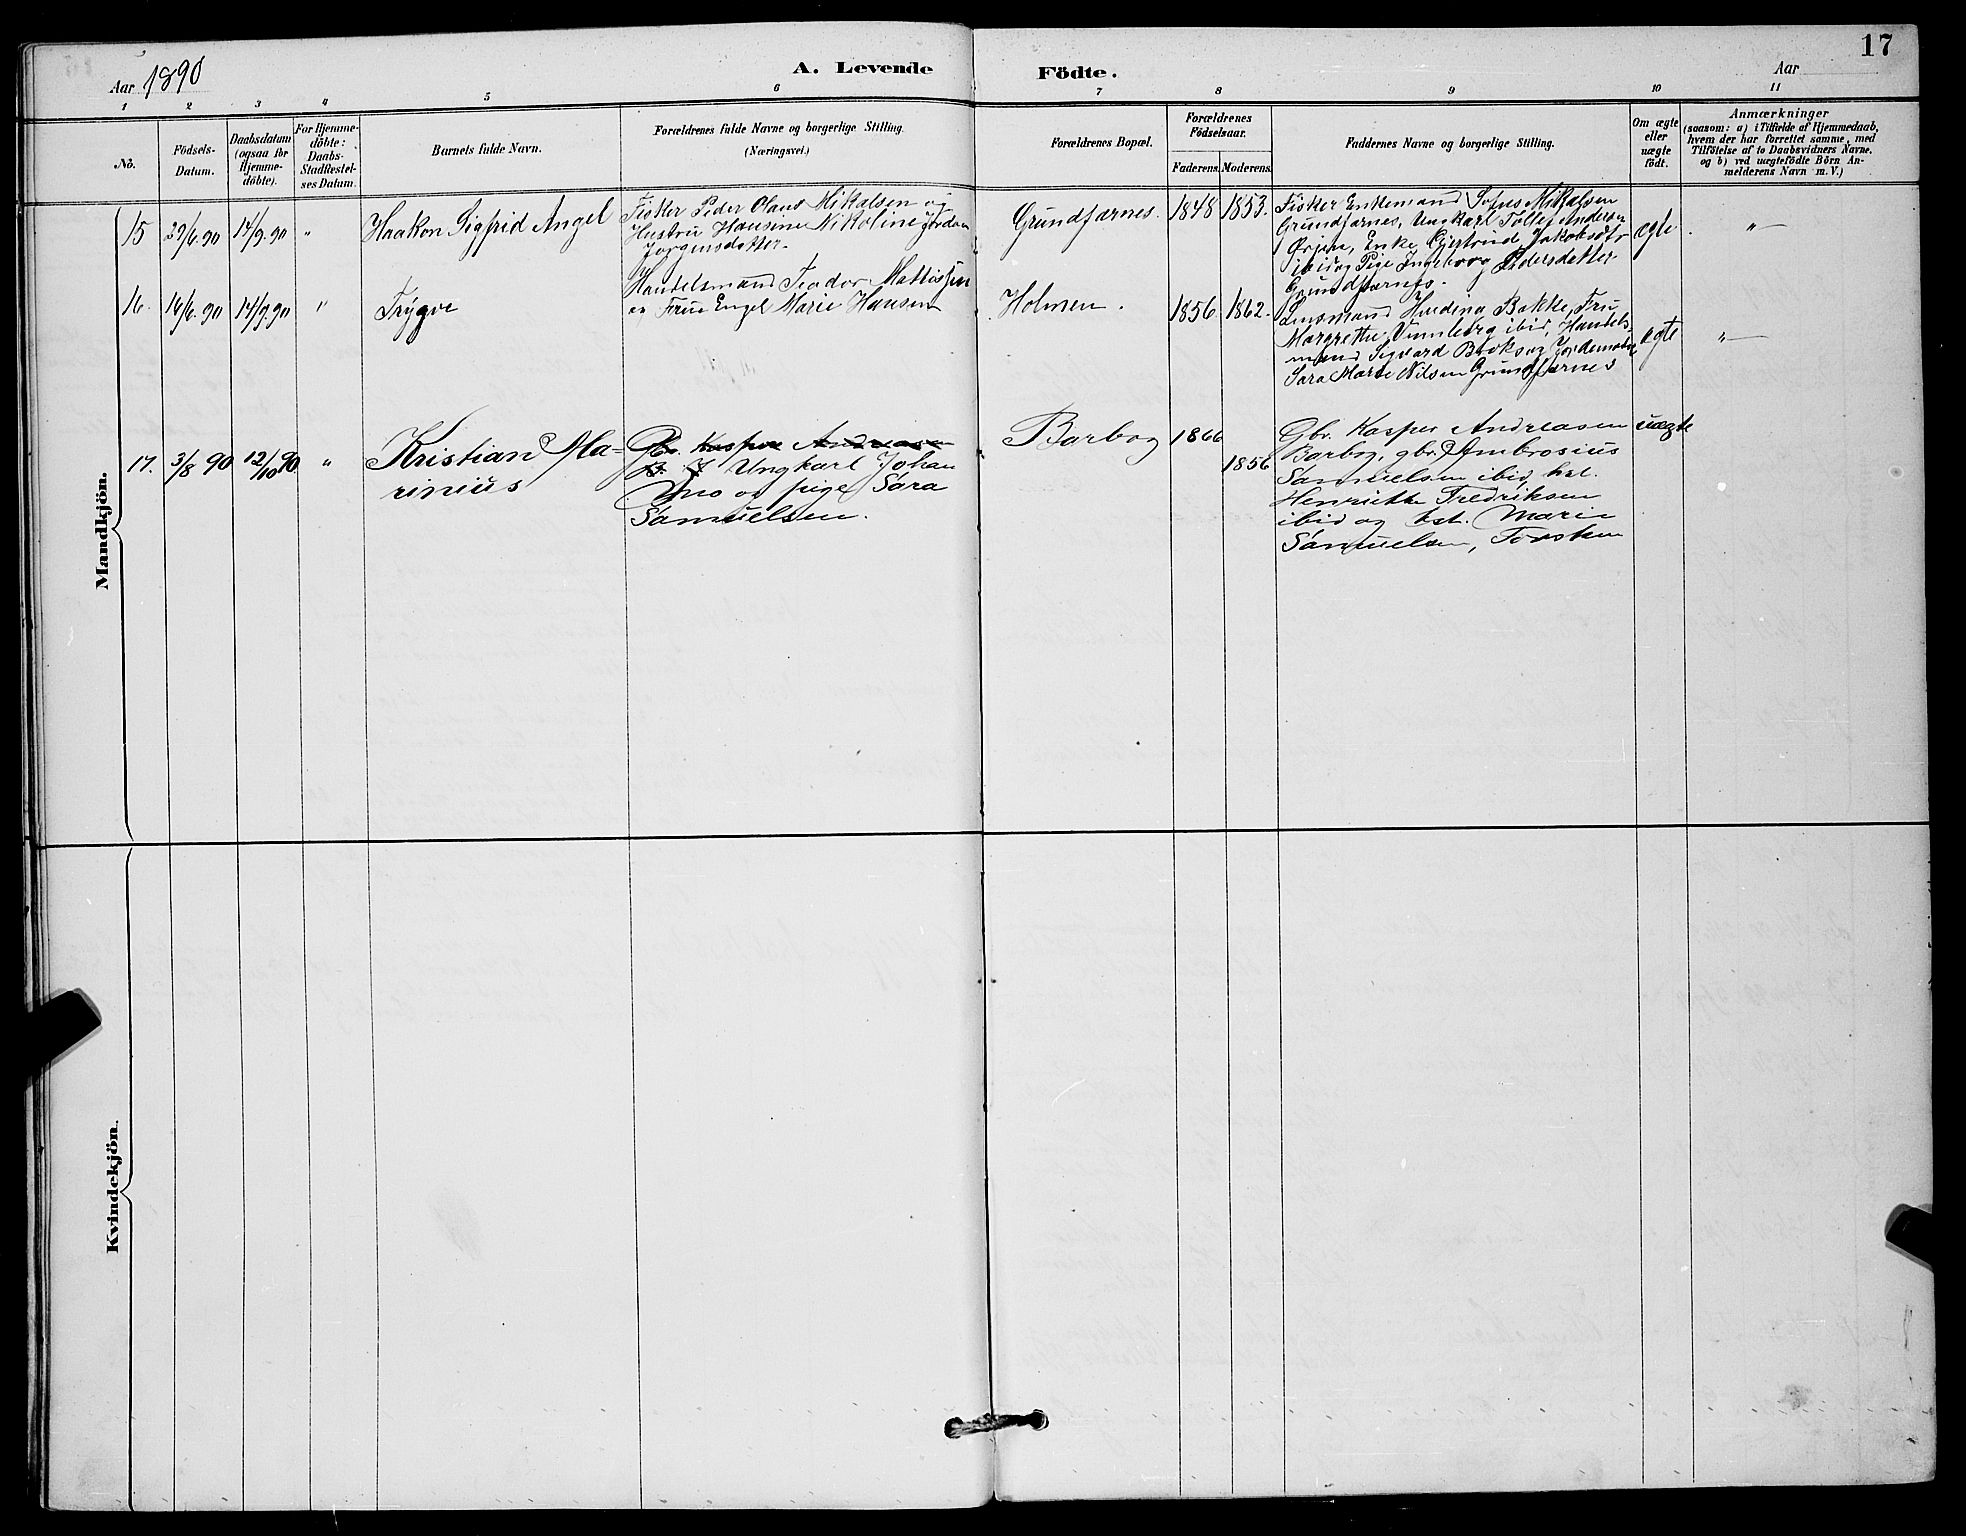 17
Aar 1890
A. Levende Födte.
Aar
1 2 3 4 5 6 7 8 9 10 11
No.
Födsels-
Datum.
Daabsdatum
(ogsaa for
Hjemme-
döbte).
For Hjemme-
döbte:
Daabs-
Stadfæstel-
ses Datum.
Barnets fulde Navn.
Forældrenes fulde Navne og borgerlige Stilling.
(Næringsvei.)
Forældrenes Bopæl.
Forældrenes
Födselsaar.
Faderens. Moderens.
Faddernes Navne og borgerlige Stilling.
Om ægte
eller
uægte
födt.
Anmærkninger
(saasom: a) i Tilfælde af Hjemmedaab,
hvem der har forrettet samme, med
Tilföielse af to Daabsvidners Navne.
og b) ved uægtefödte Börn An-
melderens Navn m. V.)
Mandkjön.
15 29/6.90 14/9.90 "
Haakon Sigfrid Angel
Fisker Peder Olaus Mikalsen og
Hustru Hansine Nikoline Jordan
Jørgensdatter.
Grundfarnes. 1848 1853.
Fisker Enkemand Sofus Mikalsen
Grundfarnes, Ungkarl Tollef Andersen
Enke Gjertrud Jakobsdtr
ibid og Pige Ingeborg Pedersdatter
Grundfarnes.
ægte. "
16. 16/6.90 14/9.90 "
Trygve
Handelsmand Teodor Mathissen
og Frue Engel Marie Hansen
Holmen. 1856 1862.
Lensmand Bakke, Fru
Margrethe ibid, Handels-
mand Sigvard og Jordemoder
Sara Marie Nilsen Grundfarnes
ægte "
17. 3/8 90 12/10 90 "
Kristian Ma-
rinius
Gbr. Kasper Andreasen
Ungkarl Johan
og pige Sara
Samuelsen.
Barbog 1866
1856
Gbr. Kasper Andreasen
Barbog, gbr. Ambrosius
Samuelsen ibid, kst.
Henriette Fredriksen
ibid og kst. Marie
Samuelsen, Torsken
uægte
Kvindekjön.